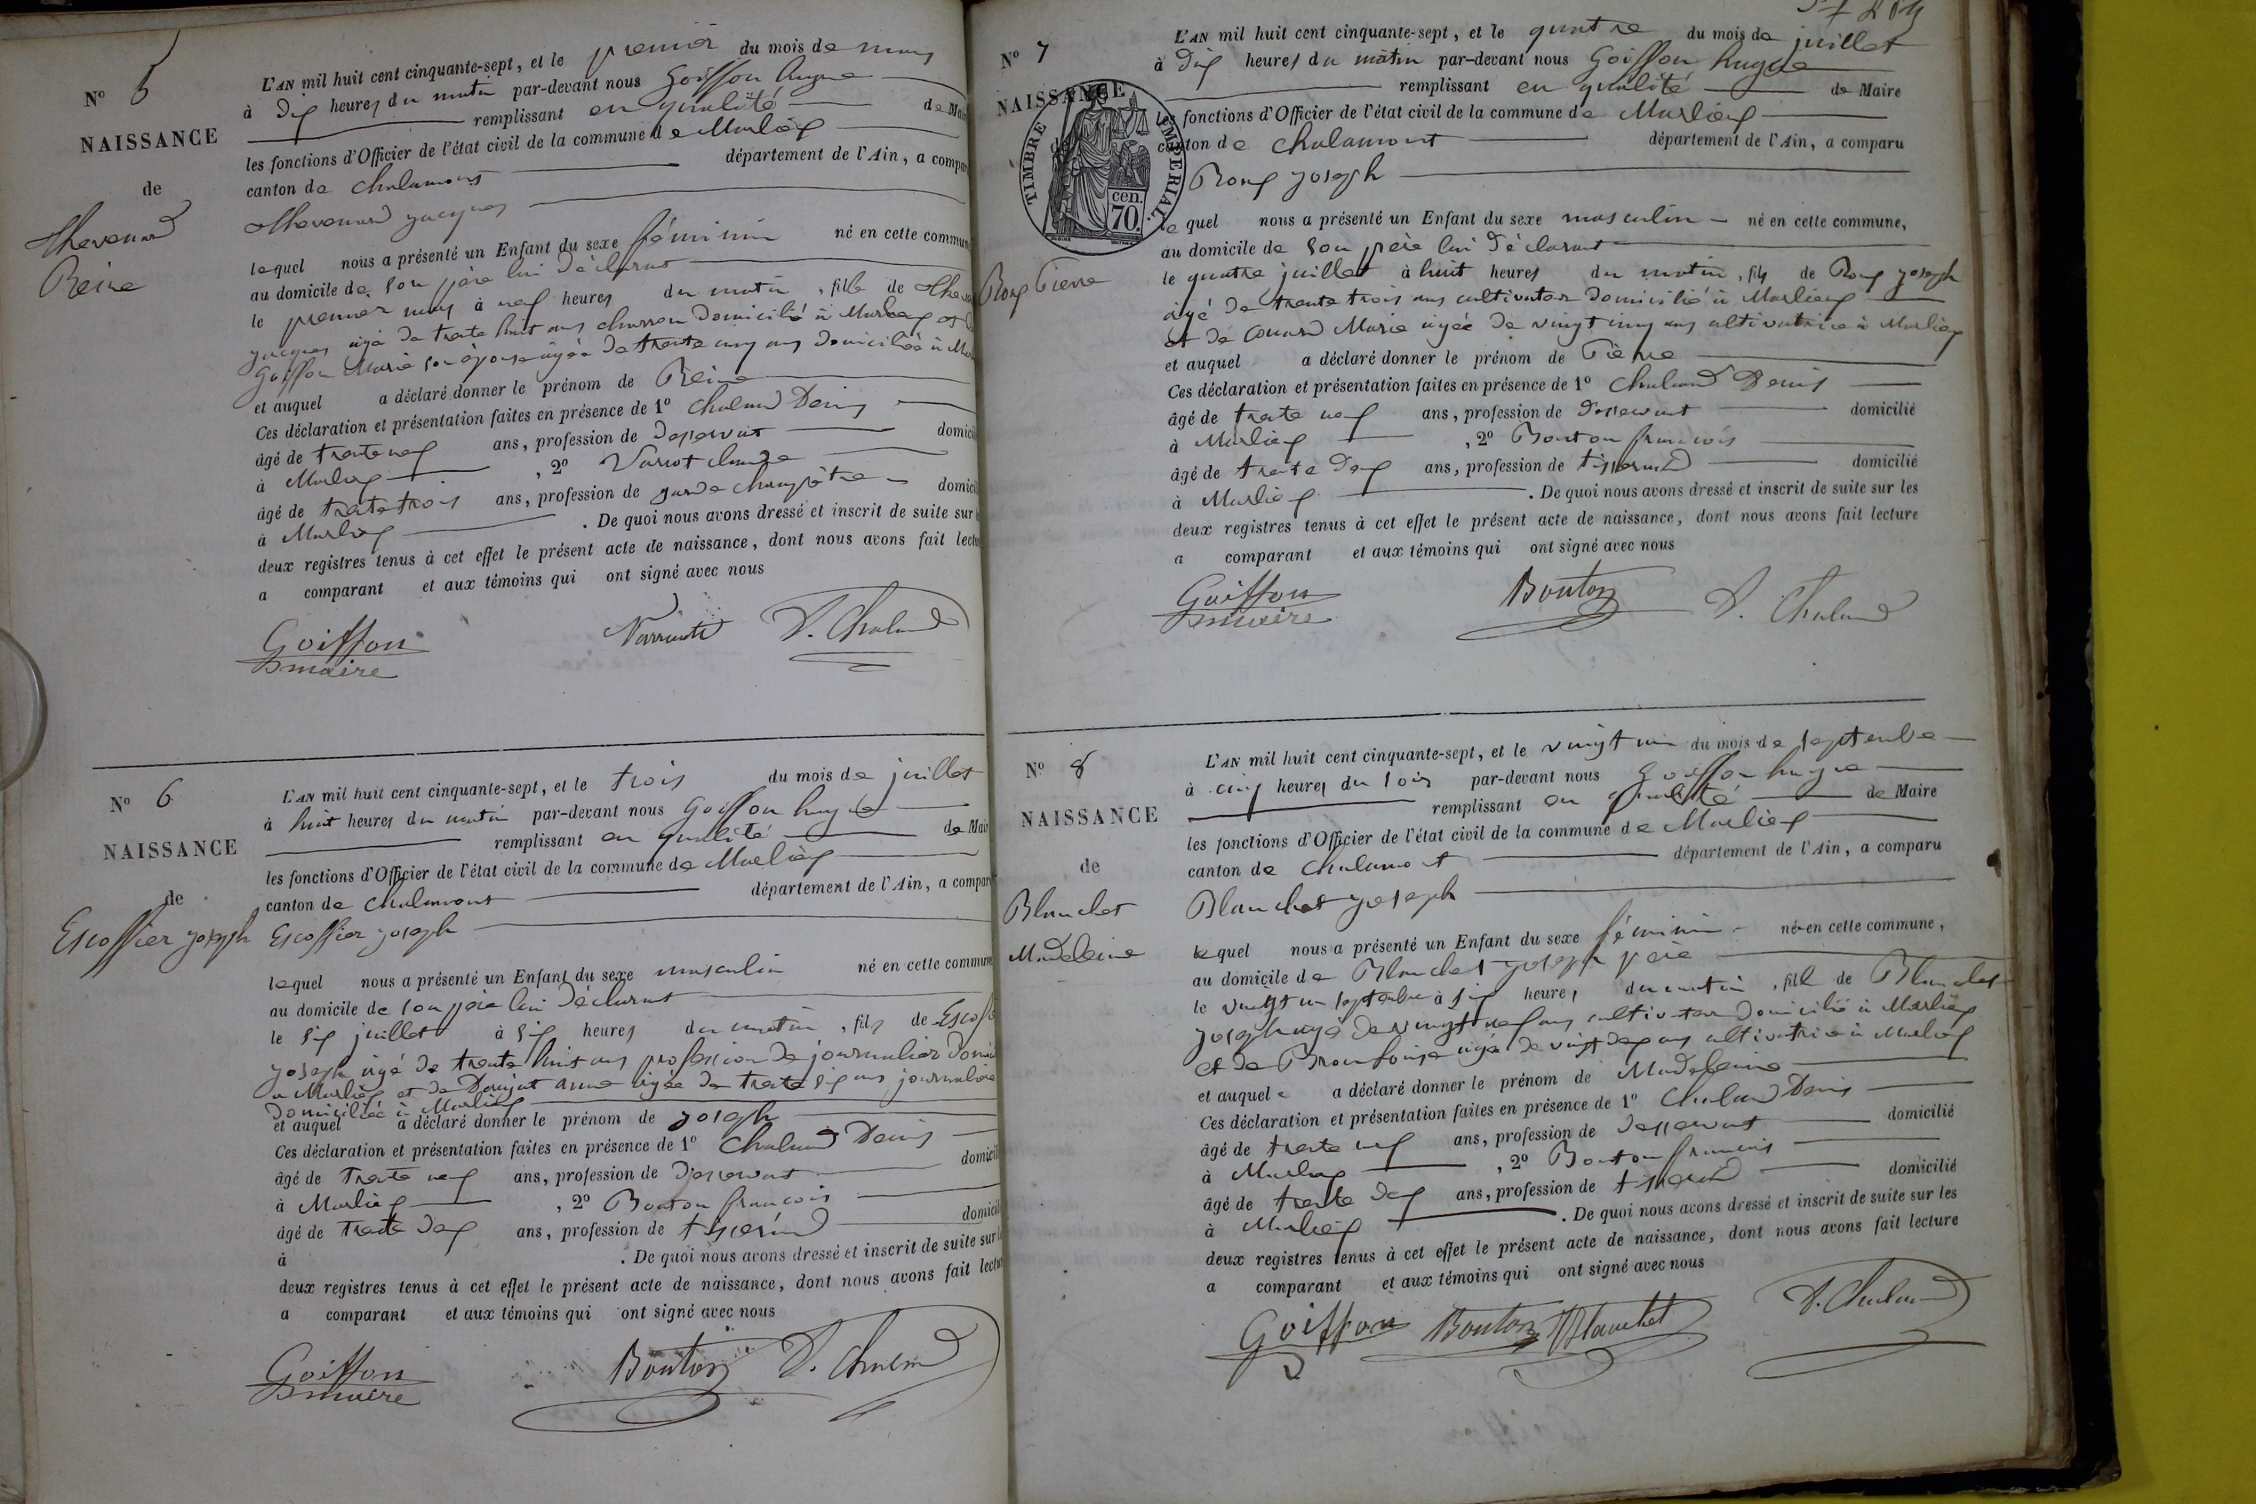 N° 5
NAISSANCE
de
Thevenard
Reine
L'AN mil huit cent cinquante-sept, et le premier du mois de mars
à dix heures du matin par-devant nous Goiffon hugue
remplissant en qualité de Mai
les fonctions d'Officier de l'état civil de la commune de Marlieux
canton de chalamont département de l'Ain, a compar
Thevenard jacques
lequel nous a présenté un Enfant du sexe féminin né en cette commun
au domicile de son père lui déclarant
le premier mars à neuf heures du matin, fille de Theve
jacques agé de trente huit ans charron domicilié à Marlieux et de
Goiffon Marie son épouse agée de trente cinq ans domiciliée à Mar
et auquel a déclaré donner le prénom de Reine
Ces déclaration et présentation faites en présence de 1° Chaland Denis
âgé de trente neuf ans, profession de desservant domicil
à Marlieux, 2° Varriot claude
âgé de trente trois ans, profession de garde champêtre domicil
à Marlieux. De quoi nous avons dressé et inscrit de suite sur
deux registres tenus à cet effet le présent acte de naissance, dont nous avons fait lectu
a comparant et aux témoins qui ont signé avec nous
Goiffon D. Chaland
maire
N° 6
NAISSANCE
de
Escoffier joseph
L'AN mil huit cent cinquante-sept, et le trois du mois de juillet
à huit heures du matin par-devant nous Goiffon hugue
remplissant en qualité de Mair
les fonctions d'Officier de l'état civil de la commune de Marlieux
canton de chalamont département de l'Ain, a compar
Escoffier joseph
lequel nous a présenté un Enfant du sexe masculin né en cette commune
au domicile de son père lui déclarant
le six juillet à six heures du matin, fils de Escoff
joseph agé de trente huit ans profession de journalier domici
a Marlieux et de anne agée de trente six ans journaliere
domiciliée à Marlieux
et auquel a déclaré donner le prénom de joseph
Ces déclaration et présentation faites en présence de 1° Chaland Denis
âgé de trente neuf ans, profession de desservant domicili
à Marlieux, 2° Bouton francois
âgé de trente deux ans, profession de tisserand domicili
à . De quoi nous avons dressé et inscrit de suite sur l
deux registres tenus à cet effet le présent acte de naissance, dont nous avons fait lectur
a comparant et aux témoins qui ont signé avec nous
Goiffon Bouton D. Chaland
maire
N° 7
NAISSANCE
de
TIMBRE IMPERIAL
70 cen.
Roux Pierre
L'AN mil huit cent cinquante-sept, et le quatre du mois de juillet
à dix heures du matin par-devant nous Goiffon hugue
remplissant en qualité de Maire
les fonctions d'Officier de l'état civil de la commune de Marlieux
canton de chalamont département de l'Ain, a comparu
Roux joseph
lequel nous a présenté un Enfant du sexe masculin né en cette commune,
au domicile de son père lui déclarant
le quatre juillet à huit heures du matin, fils de Roux joseph
agé de trente trois ans cultivateur domicilié à Marlieux
et de Marie agée de vingt cinq ans cultivatrice à Marlieux
et auquel a déclaré donner le prénom de Pierre
Ces déclaration et présentation faites en présence de 1° Chaland Denis
âgé de trente neuf ans, profession de desservant domicilié
à Marlieux, 2° Bouton francois
âgé de trente deux ans, profession de tisserand domicilié
à Marlieux. De quoi nous avons dressé et inscrit de suite sur les
deux registres tenus à cet effet le présent acte de naissance, dont nous avons fait lecture
a comparant et aux témoins qui ont signé avec nous
Goiffon Bouton D. Chaland
maire
N° 8
NAISSANCE
de
Blanchet
Madeleine
L'AN mil huit cent cinquante-sept, et le vingt un du mois de septembre
à cinq heures du soir par-devant nous Goiffon hugue
remplissant en qualité de Maire
les fonctions d'Officier de l'état civil de la commune de Marlieux
canton de chalamont département de l'Ain, a comparu
Blanchet joseph
lequel nous a présenté un Enfant du sexe féminin né en cette commune,
au domicile de Blanchet joseph père
le vingt un septembre à six heures du matin, fille de Blanchet
joseph agé de vingt neuf ans cultivateur domicilié à Marlieux
et de agée de vingt deux ans cultivatrice à Marlieux
et auquel a déclaré donner le prénom de Madeleine
Ces déclaration et présentation faites en présence de 1° Chaland Denis
âgé de trente neuf ans, profession de desservant domicilié
à Marlieux, 2° Bouton francois
âgé de trente deux ans, profession de tisserand domicilié
à Marlieux. De quoi nous avons dressé et inscrit de suite sur les
deux registres tenus à cet effet le présent acte de naissance, dont nous avons fait lecture
a comparant et aux témoins qui ont signé avec nous
Goiffon Bouton Blanchet D. Chaland